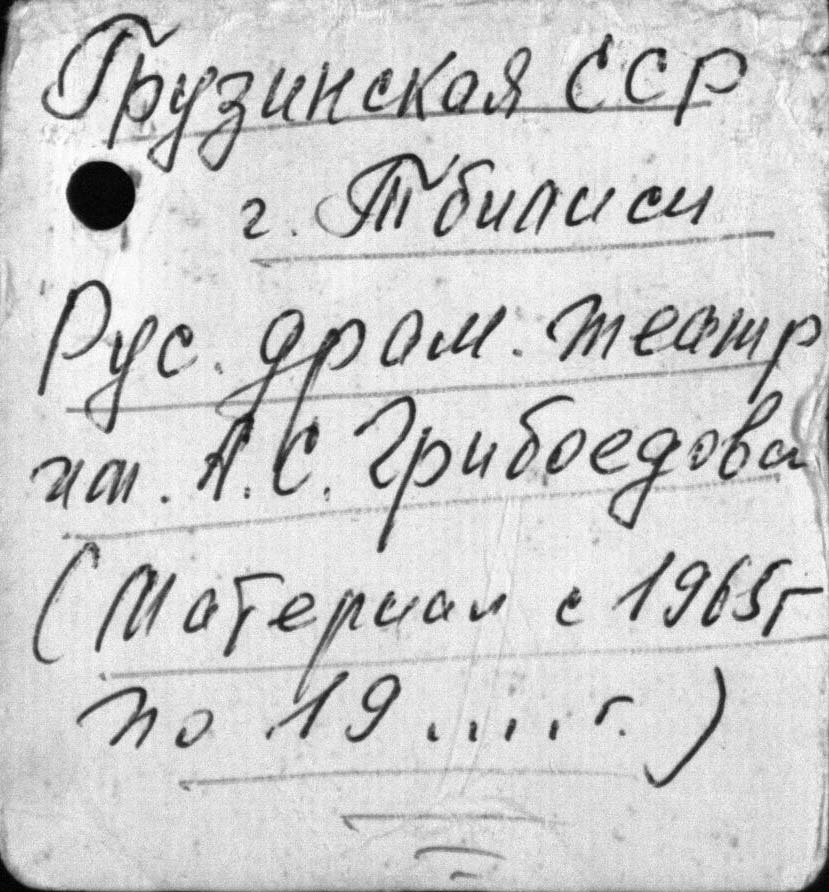 Грузинская ССР
г. Тбилиси
Рус. драм. театр
им. А.С. Грибоедова
(Материал с 1965г
по 19.....г.)